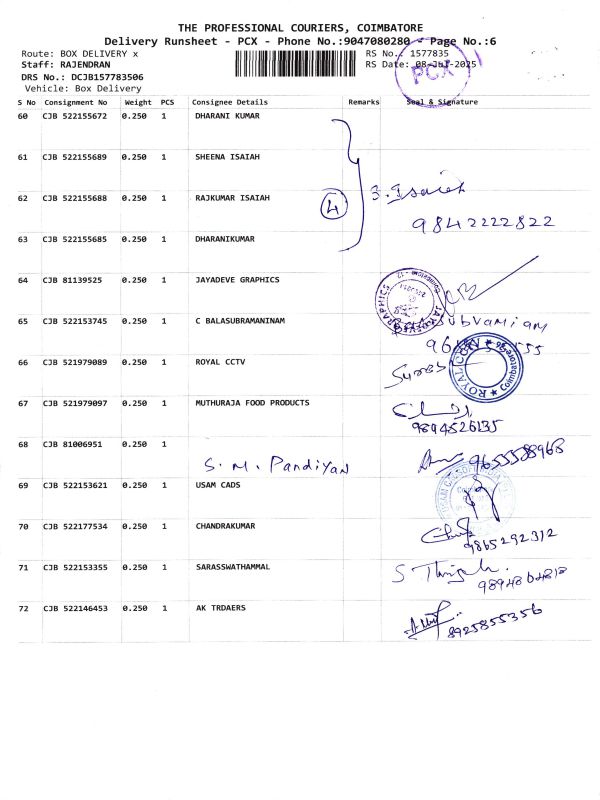 THE PROFESSIONAL COURIERS, COIMBATORE
Delivery Runsheet - PCX - Phone No.:9047080280 - Page No.:6
Route: BOX DELIVERY x RS No.: 1577835
Staff: RAJENDRAN RS Date: 08-Jul-2025
PCX
DRS No.: DCJB157783506
Vehicle: Box Delivery
S No Consignment No Weight PCS Consignee Details Remarks Seal & Signature
60 CJB 522155672 0.250 1 DHARANI KUMAR
61 CJB 522155689 0.250 1 SHEENA ISAIAH
62 CJB 522155688 0.250 1 RAJKUMAR ISAIAH 4 Isaiah
9842222822
63 CJB 522155685 0.250 1 DHARANIKUMAR
64 CJB 81139525 0.250 1 JAYADEVE GRAPHICS
65 CJB 522153745 0.250 1 C BALASUBRAMANINAM
66 CJB 521979089 0.250 1 ROYAL CCTV
ROYAL CCTV ★ Coimbatore ★
67 CJB 521979097 0.250 1 MUTHURAJA FOOD PRODUCTS
9894526135
68 CJB 81006951 0.250 1
S. M. Pandiyan 9655588968
69 CJB 522153621 0.250 1 USAM CADS
70 CJB 522177534 0.250 1 CHANDRAKUMAR
9865292312
71 CJB 522153355 0.250 1 SARASSWATHAMMAL
72 CJB 522146453 0.250 1 AK TRDAERS
8925855356